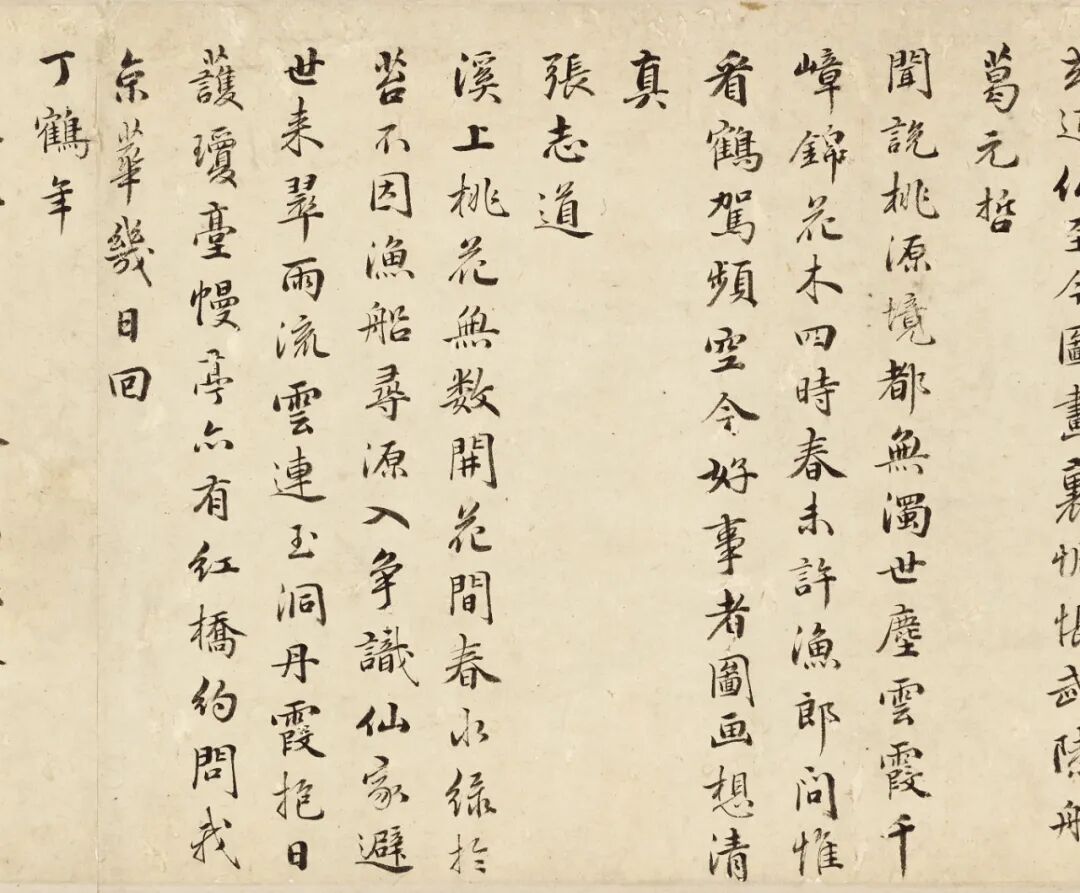 玄近仙至今圖畫裏惆悵武陵舟
葛元哲
聞説桃源境都無濁世塵雲霞千
嶂錦花木四時春未許漁郎問惟
看鶴駕頻空今好事者圖画想清
真
張志道
溪上桃花無数開花間春水緑於
苔不因漁船尋源入争識仙家避
世来翠雨流雲連玉洞丹霞抱日
護瓊臺幔亭亦有紅橋約問我
京華幾日回
丁鶴年